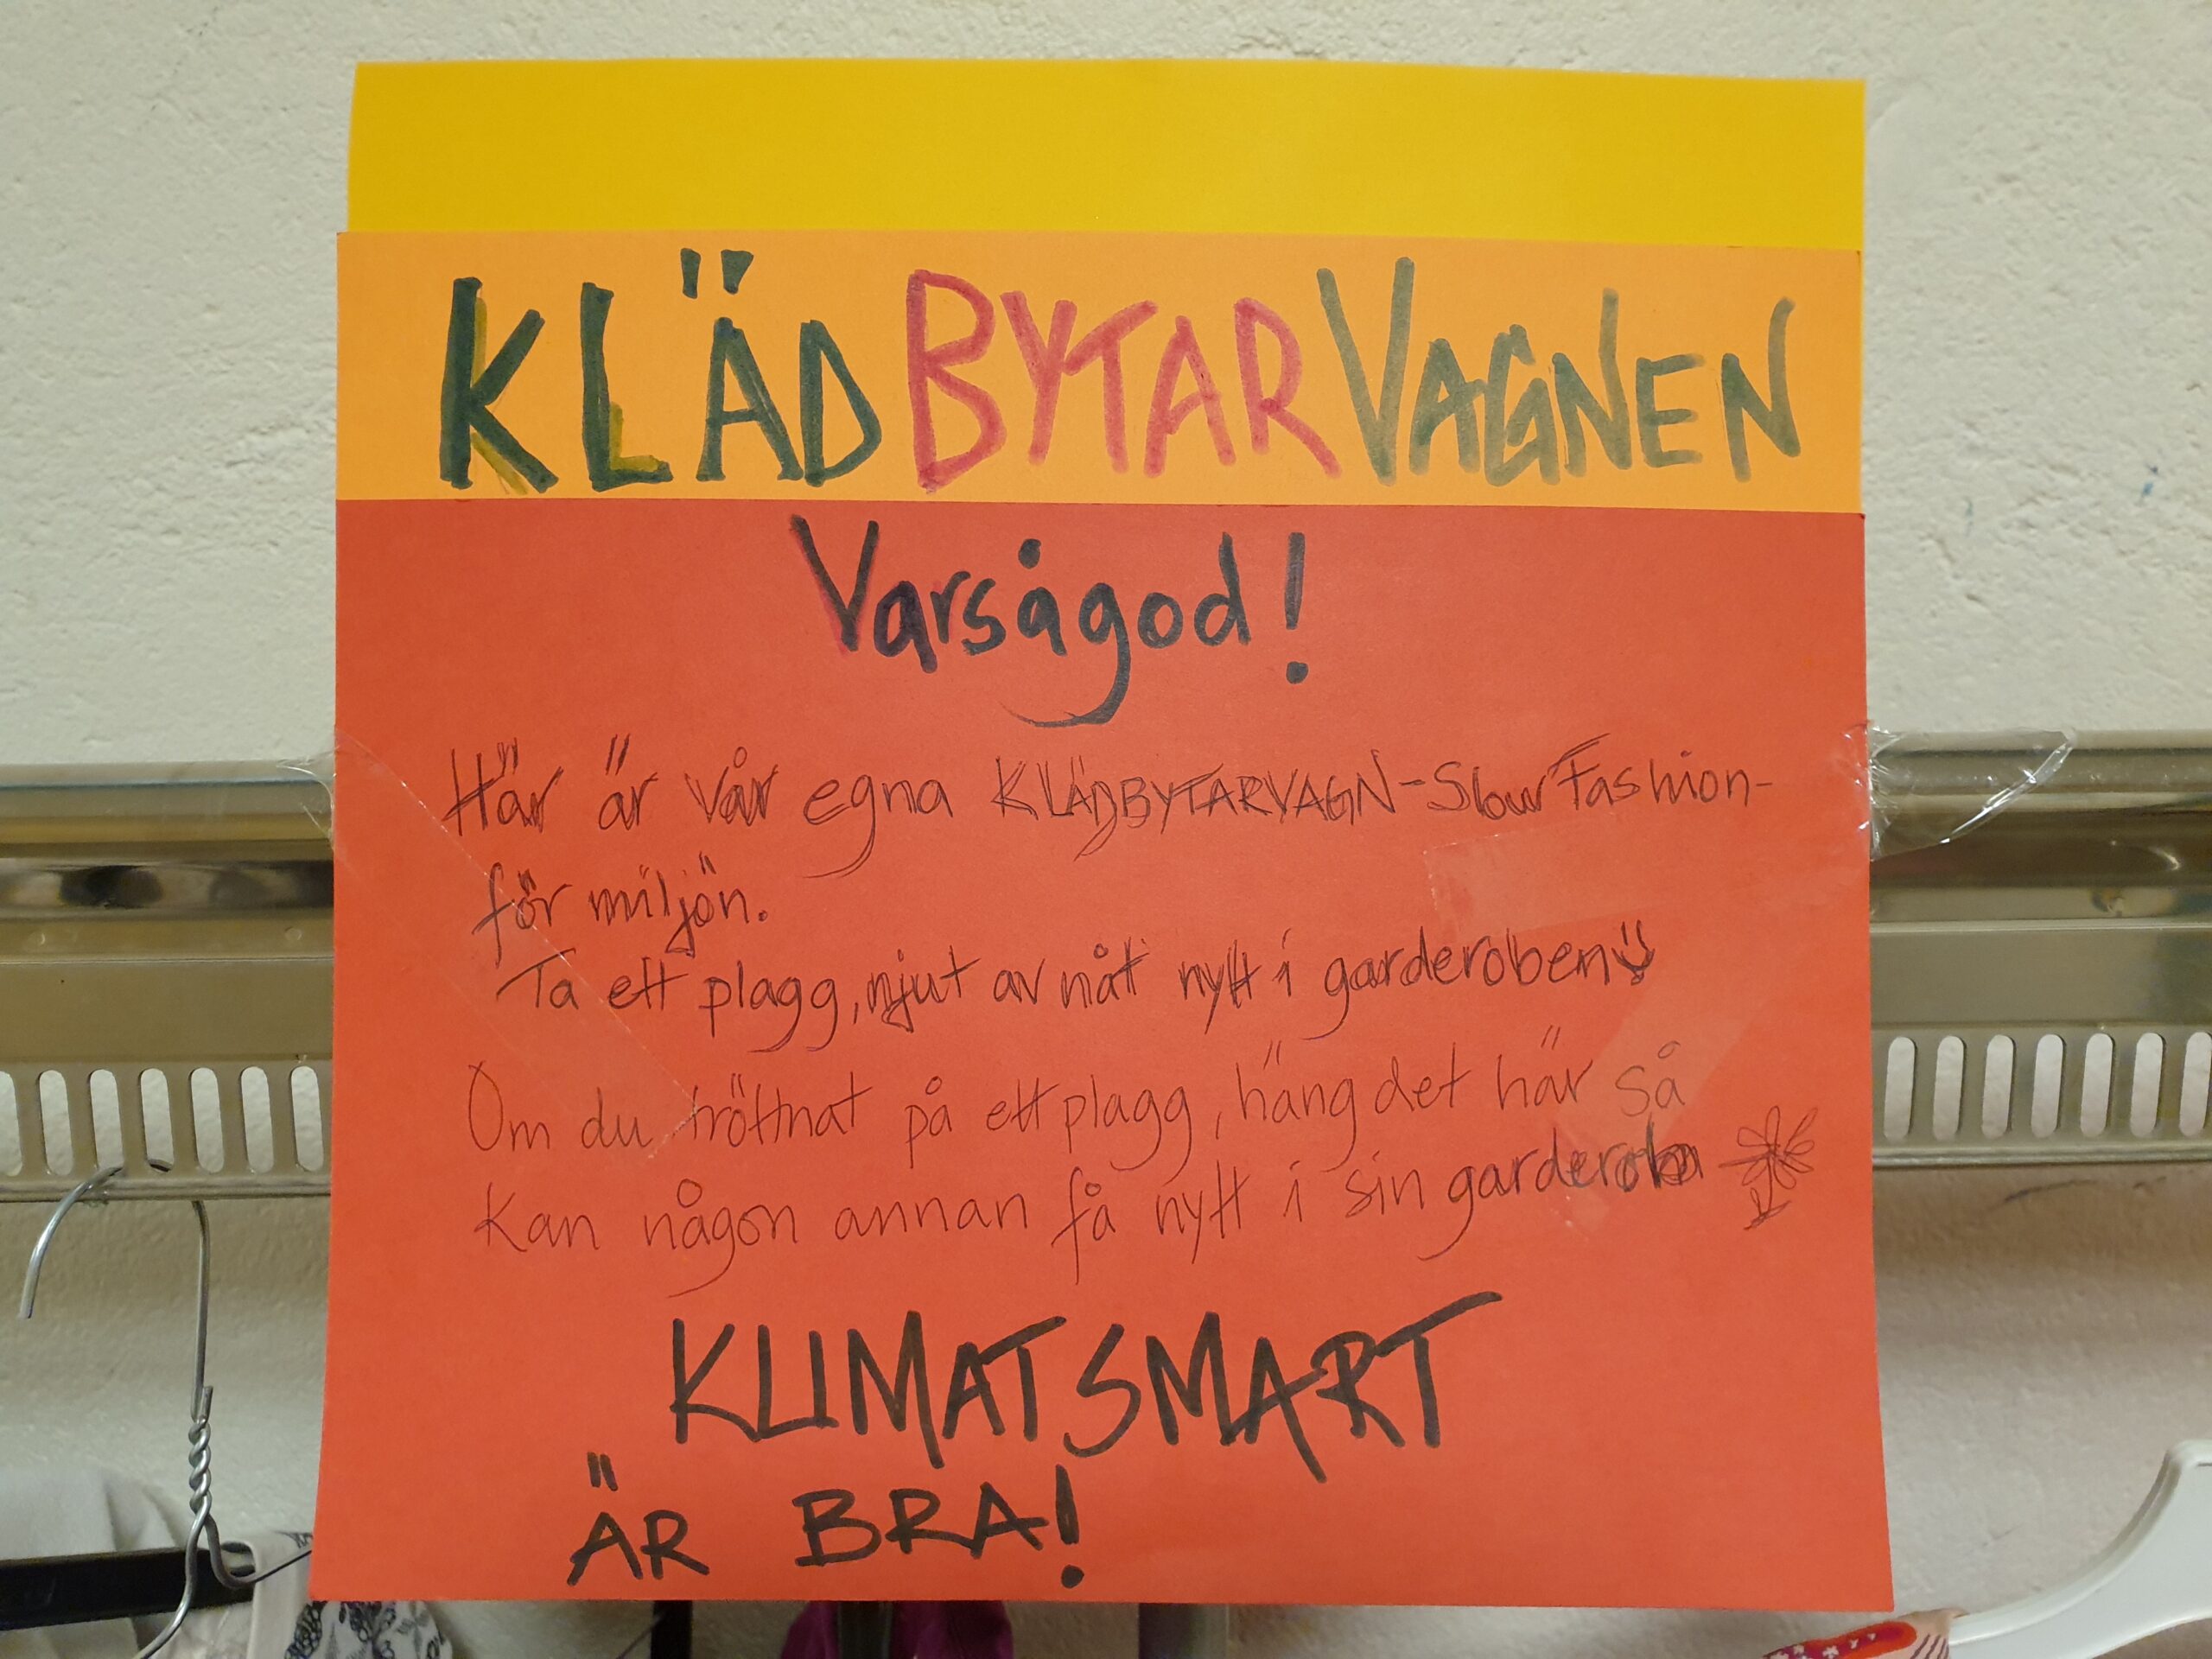 KLÄDBYTARVAGNEN
Varsågod!
Här är vår egna KLÄDBYTARVAGN-Slow Fashion-
för miljön.
Ta ett plagg, njut av nåt nytt i garderoben
Om du tröttnat på ett plagg, häng det här så
kan någon annan få nytt i sin garderob
KLIMATSMART
ÄR BRA!